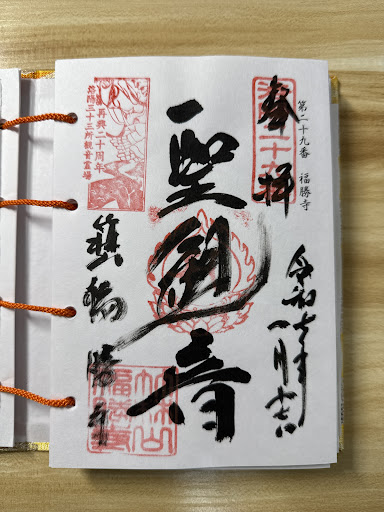 第二十九番 福勝寺
奉拝
令和七年
一月十六
聖観音
再興二十周年
洛陽三十三所観音霊場
福勝寺
竹林山
福勝寺